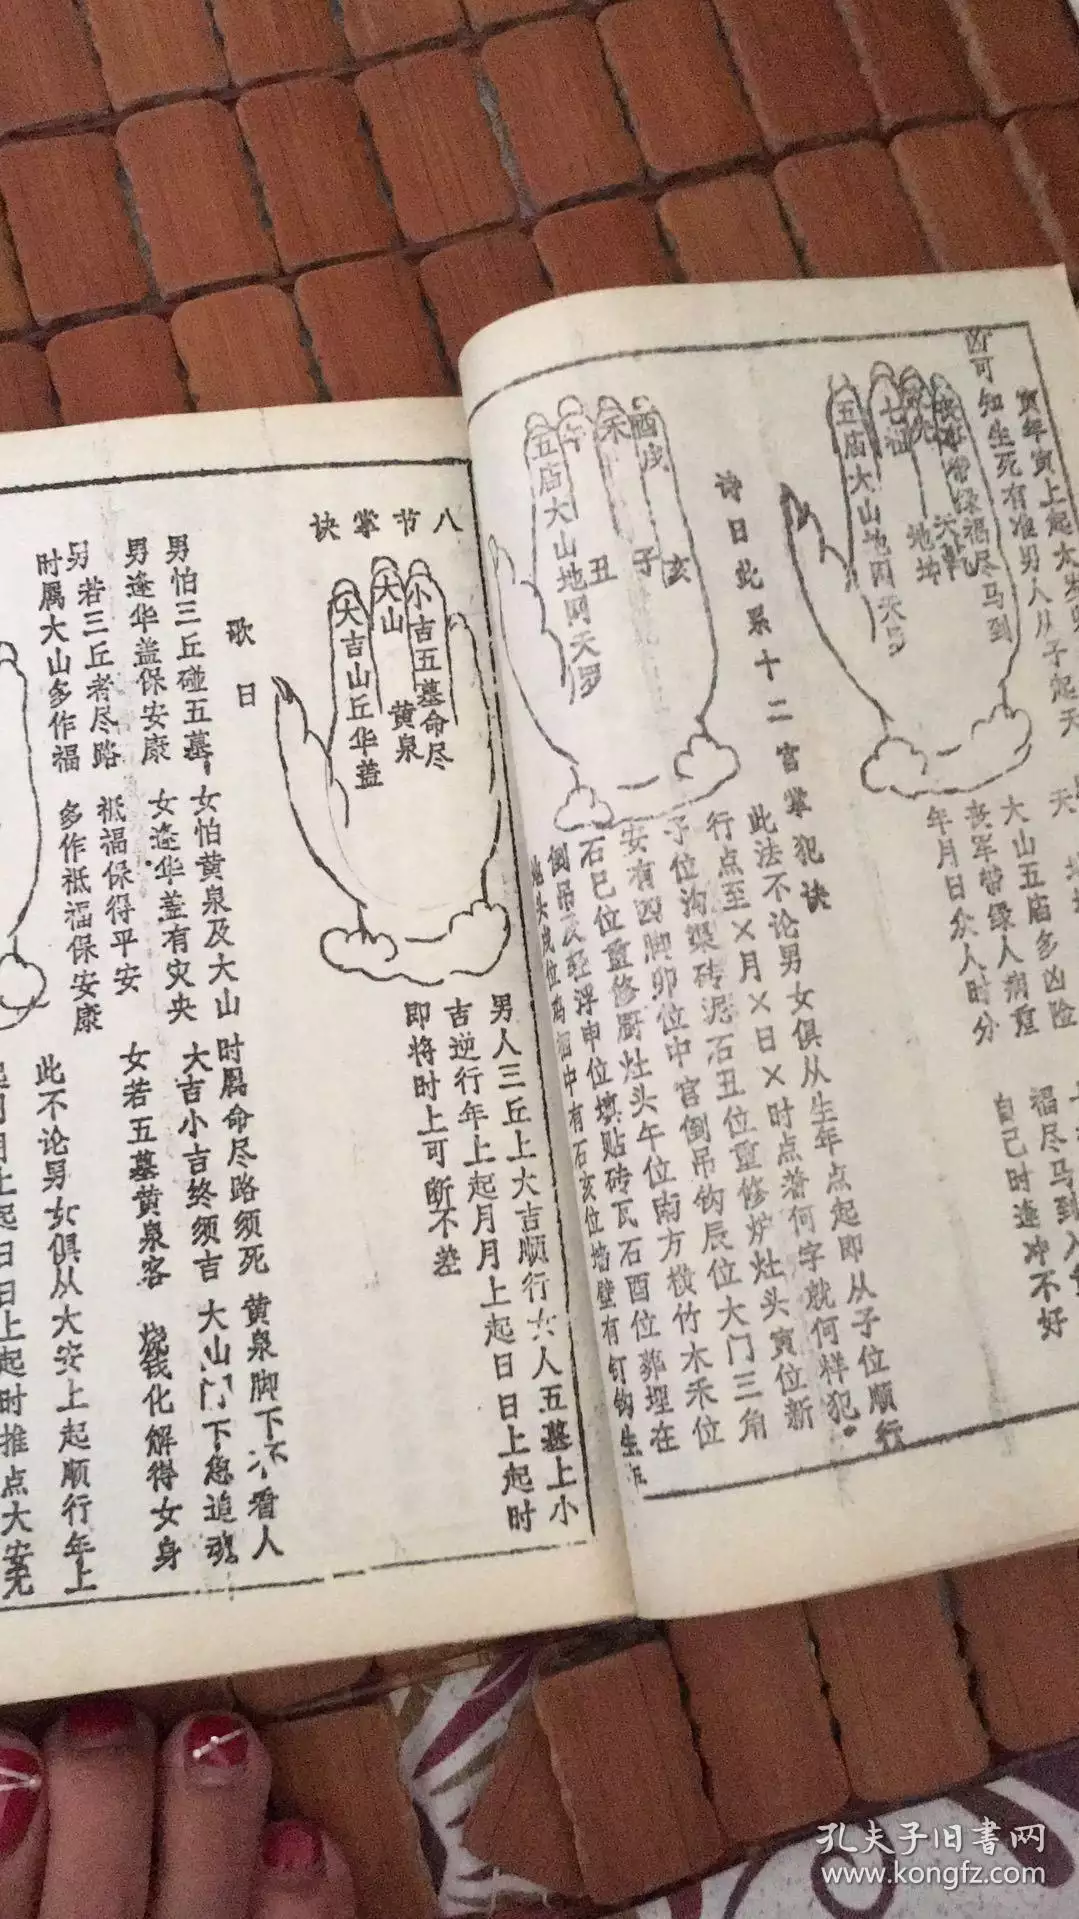 凶可知生死有准男人从子起天
五庙大山地网天罗
七
常绿福尽马到
地坤
大山五庙多凶险
丧军带绿人病重
年月日众人时分
福尽马到入
自己时逢冲不好
诗曰此系十二宫掌犯诀
酉戌
禾
午
五庙大山地网天罗
丑
子
亥
此法不论男女俱从生年点起即从子位顺行
行点至×月×日×时点着何字就何样犯。
子位沟渠砖泥石丑位重修炉灶头寅位新
安有四脚卯位中宫倒吊钩辰位大门三角
石巳位重修厨灶头午位南方横竹木禾位
倒吊及轻浮申位填贴砖瓦石酉位葬埋在
中有石亥位墙壁有钉钩生
八节掌诀
小吉五墓命尽
大山
黄泉
大吉山丘华盖
男人三丘上大吉顺行女人五墓上小
吉逆行年上起月月上起日日上起时
即将时上可断不差
歌曰
男怕三丘碰五墓
女怕黄泉及大山
时属命尽路须死
黄泉脚下不看人
男逢华盖保安康
女逢华盖有灾央
大吉小吉终须吉
大山门下急追魂
男若三丘者尽路
祗福保得平安
女若五墓黄泉客
烧钱化解得女身
时属大山多作福
多作祗福保安康
此不论男女俱从大安上起顺行年上
起月月上起日日上起时推点大安无
孔夫子旧书网
www.kongfz.com